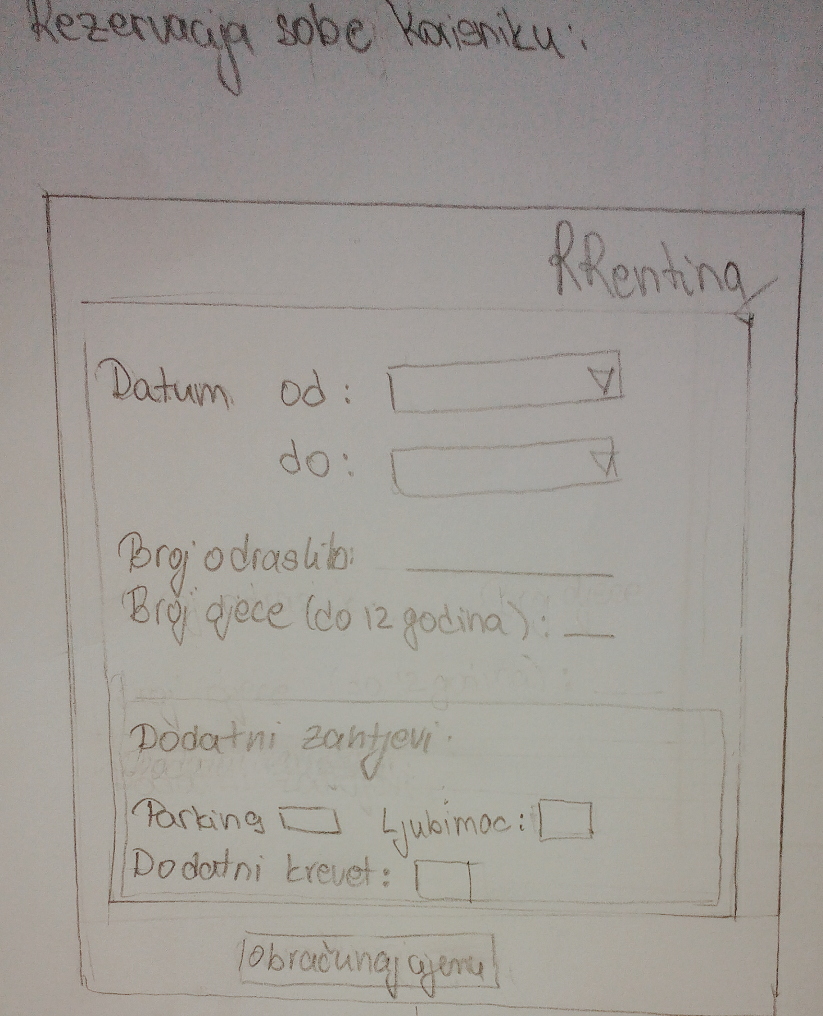 Rezervacija sobe Korisniku:
RRenting
Datum od:
do:
Broj odraslih:
Broj djece (do 12 godina):
Dodatni zahtjevi:
Parking Ljubimac:
Dodatni krevet:
Obračunaj cijenu